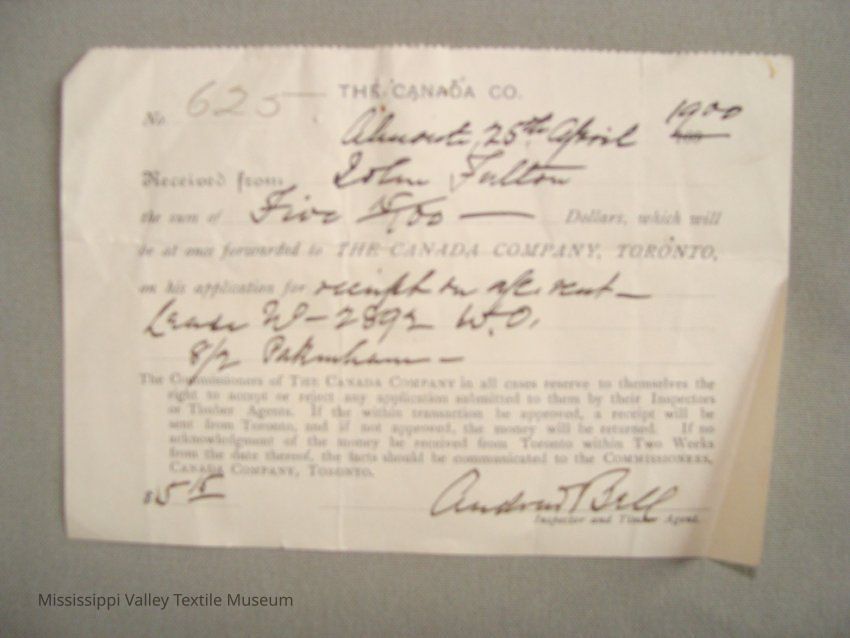 THE CANADA CO.
No. 625
Almonte 25th April 1900
Received from John Fulton
the sum of Five Dollars, which will
be at once forwarded to THE CANADA COMPANY, TORONTO,
on his application for receipt on rent
Lease W.O.
8/2 Pakenham
The Commissioners of THE CANADA COMPANY in all cases reserve to themselves the
right to accept or reject any application submitted to them by their Inspectors
or Timber Agents. If the within transaction be approved, a receipt will be
sent from Toronto, and if not approved, the money will be returned. If no
acknowledgment of the money be received from Toronto within Two Weeks
from the date thereof, the facts should be communicated to the COMMISSIONERS,
CANADA COMPANY, TORONTO.
Andrew Bell
Inspector and Timber Agent.
Mississippi Valley Textile Museum